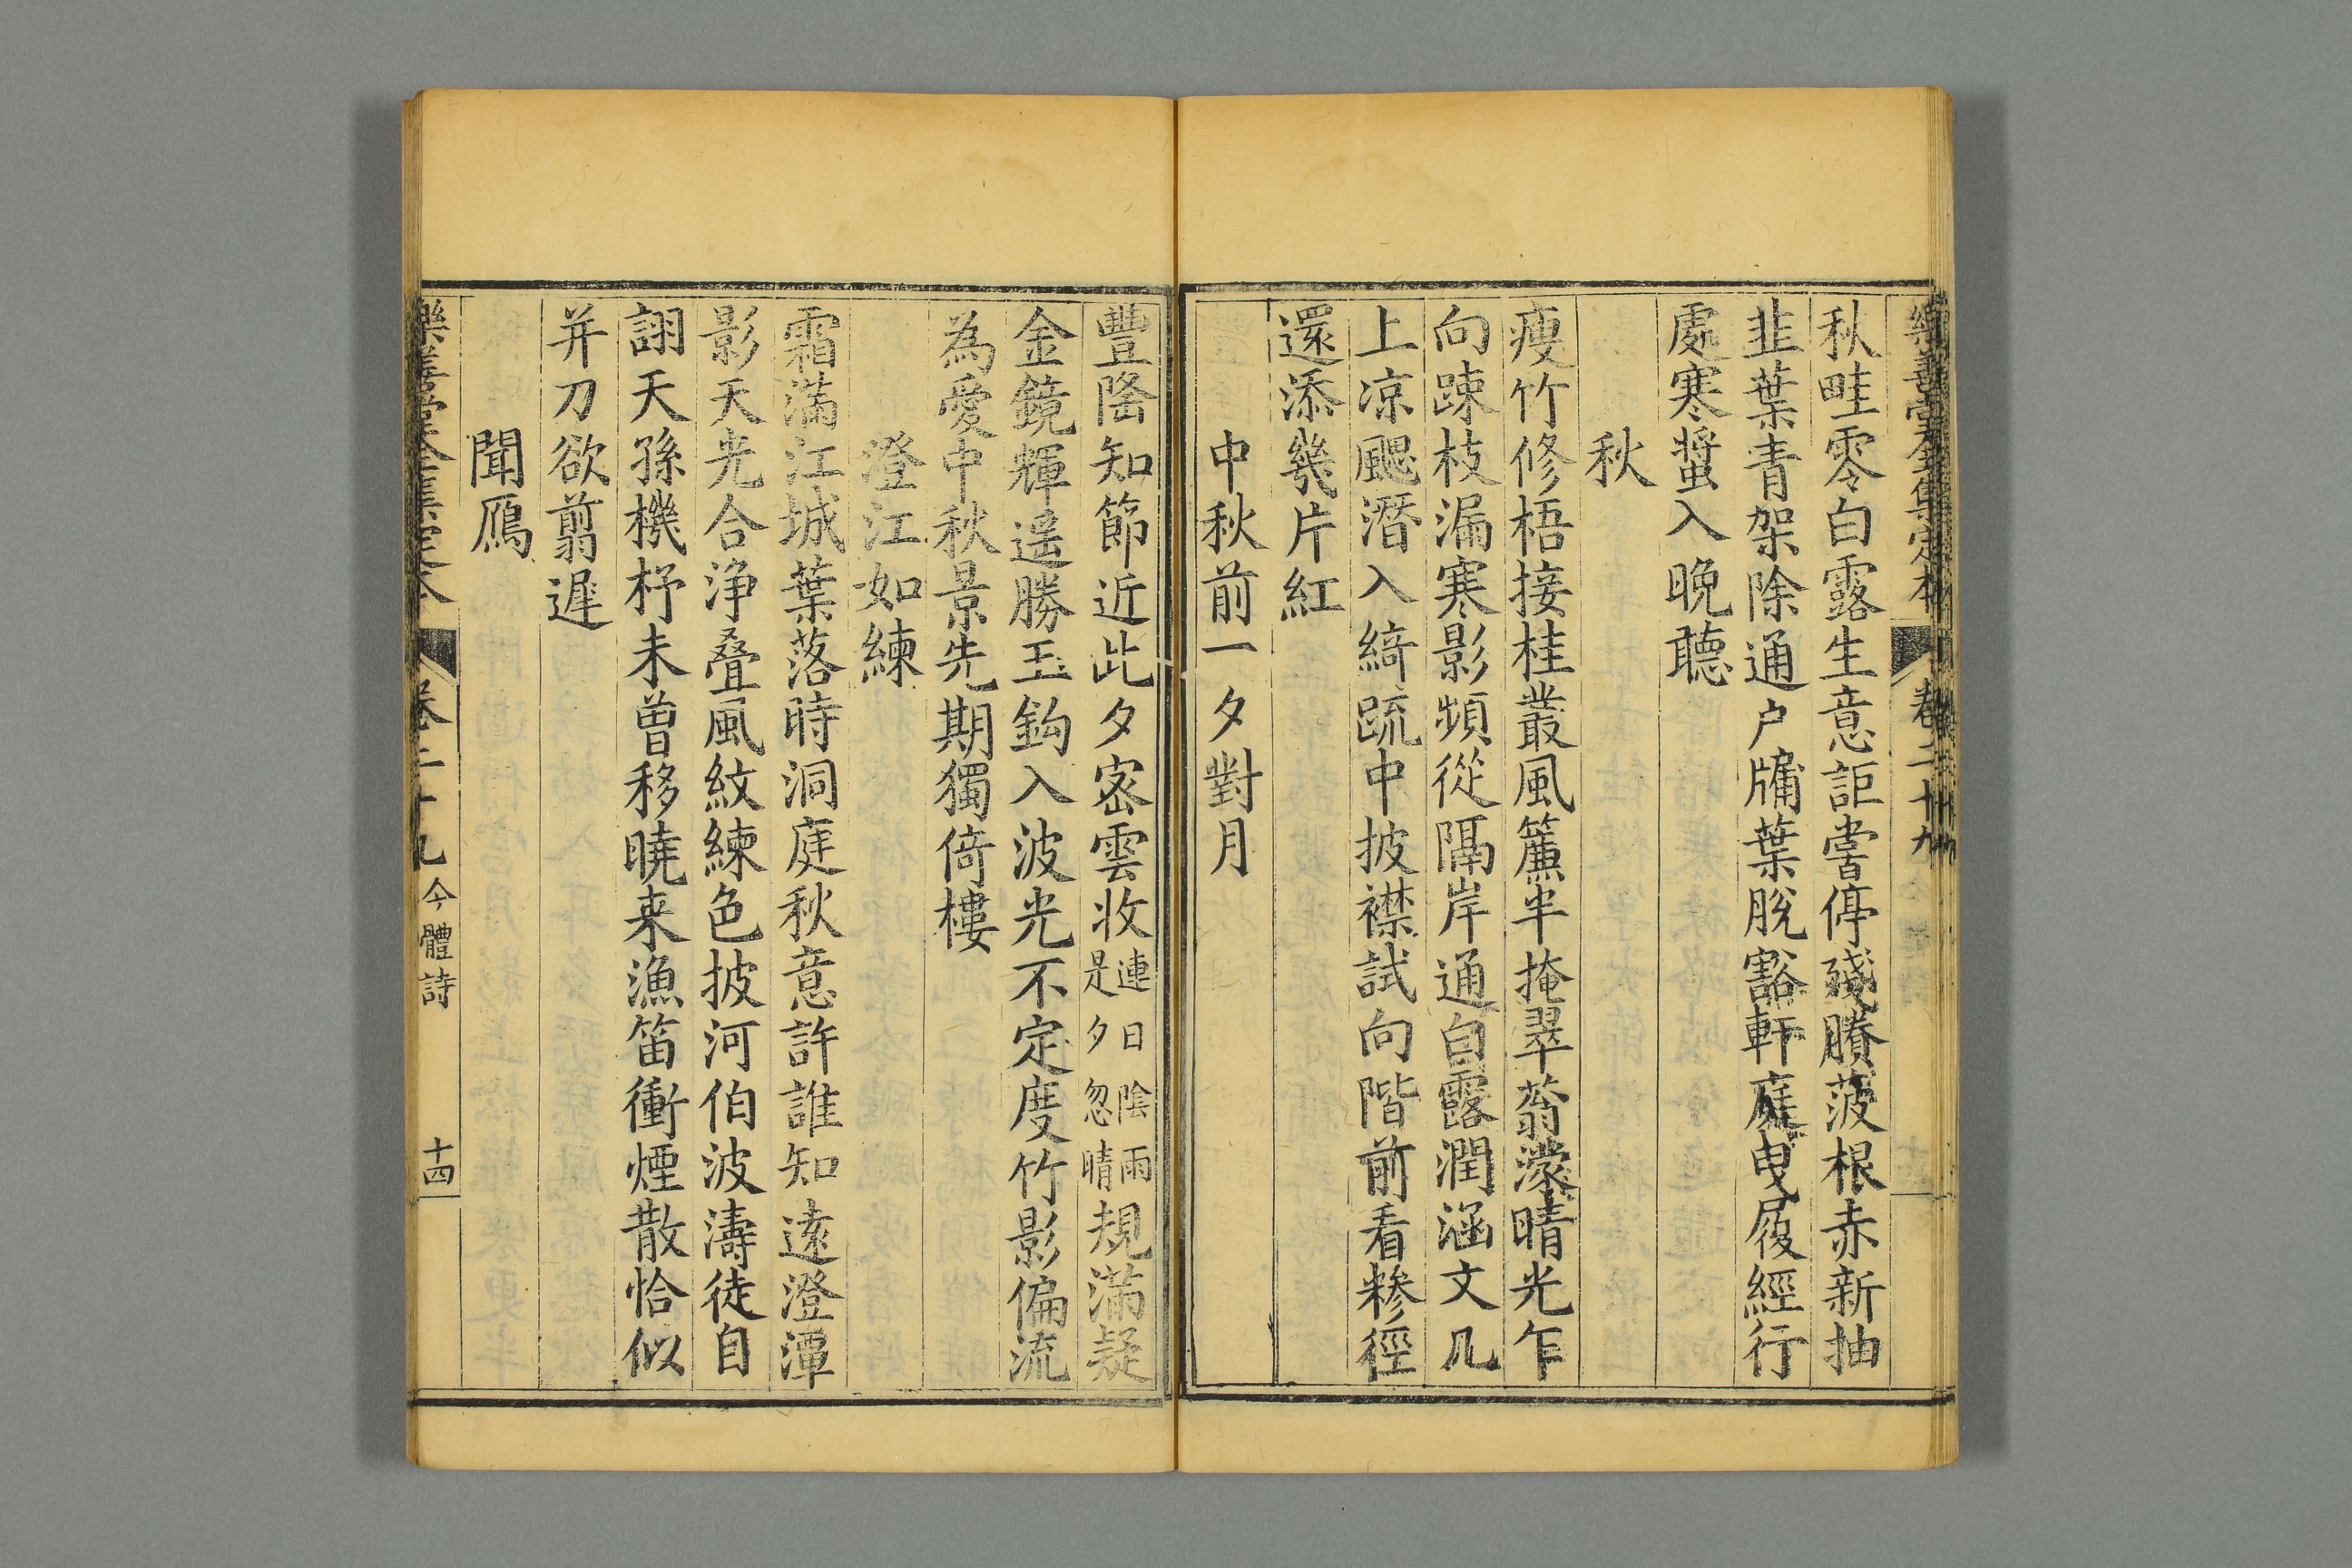 樂善堂全集定本 卷二十九
秋畦零白露生意詎嘗停殘賸菠根赤新抽
韭葉青架除通户牖葉脫豁軒庭曳屐經行
處寒螿入晚聽
秋
瘦竹修梧接桂叢風簾半掩翠蓊濛晴光乍
向踈枝漏寒影頻從隔岸通白露潤涵文几
上凉颸潛入綺疏中披襟試向階前看糝徑
還添幾片紅
中秋前一夕對月
豐隆知節近此夕密雲收連日陰雨是夕忽晴規滿疑
金鏡輝遥勝玉鈎入波光不定度竹影偏流
為愛中秋景先期獨倚樓
澄江如練
霜滿江城葉落時洞庭秋意許誰知遠澄潭
影天光合淨叠風紋練色披河伯波濤徒自
詡天孫機杼未曾移曉来漁笛衝煙散恰似
并刀欲翦遲
聞鴈
樂善堂全集定本 卷二十九 今體詩 十四